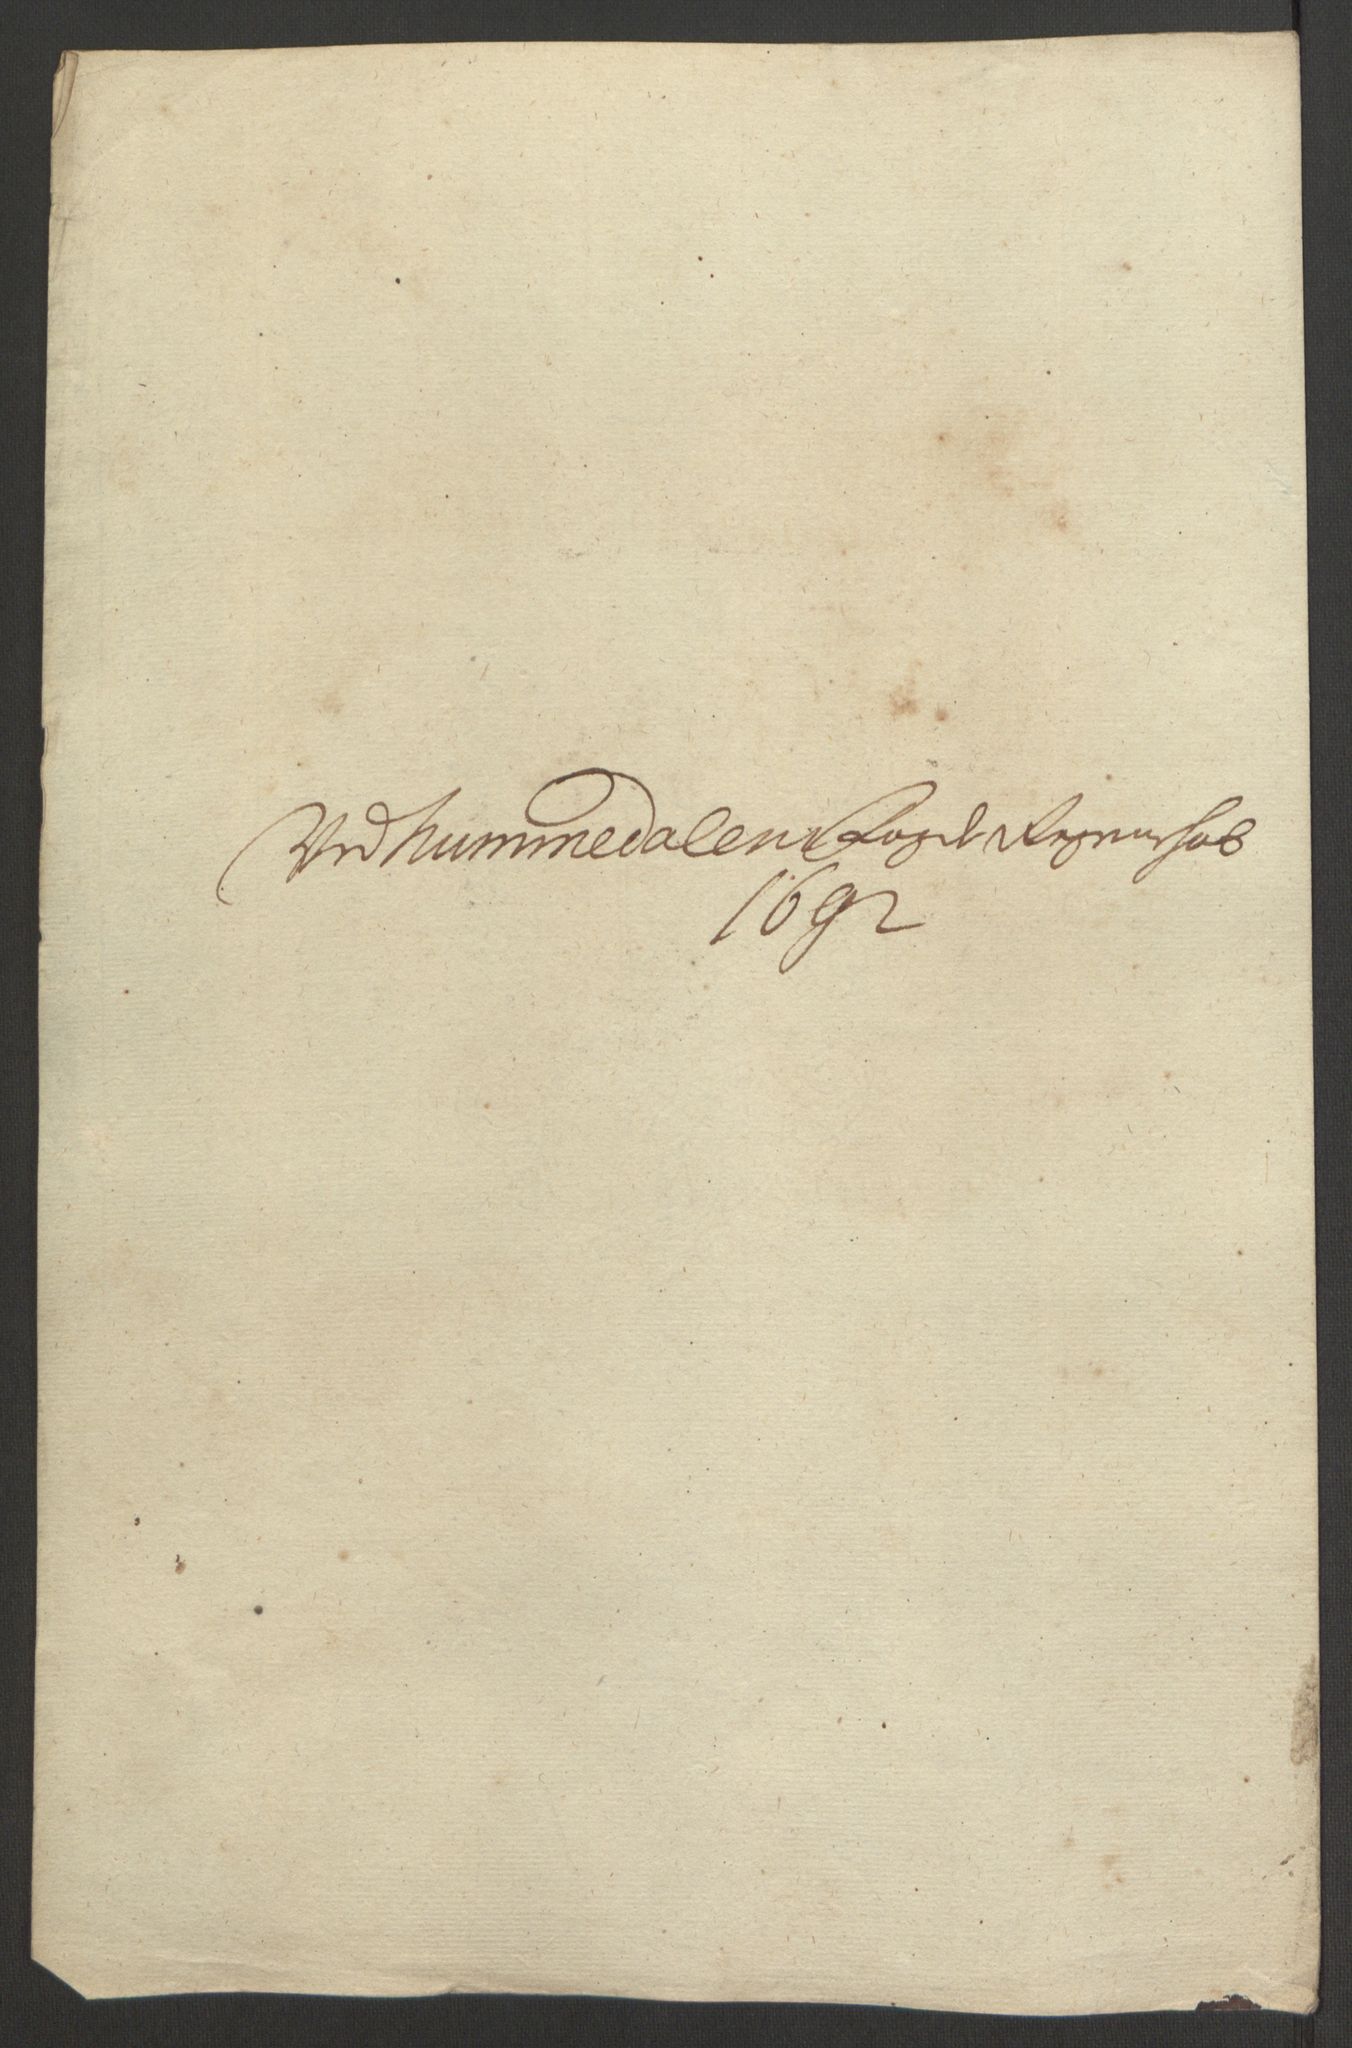 Ved Nummedalens Fogd Regenschab
1692